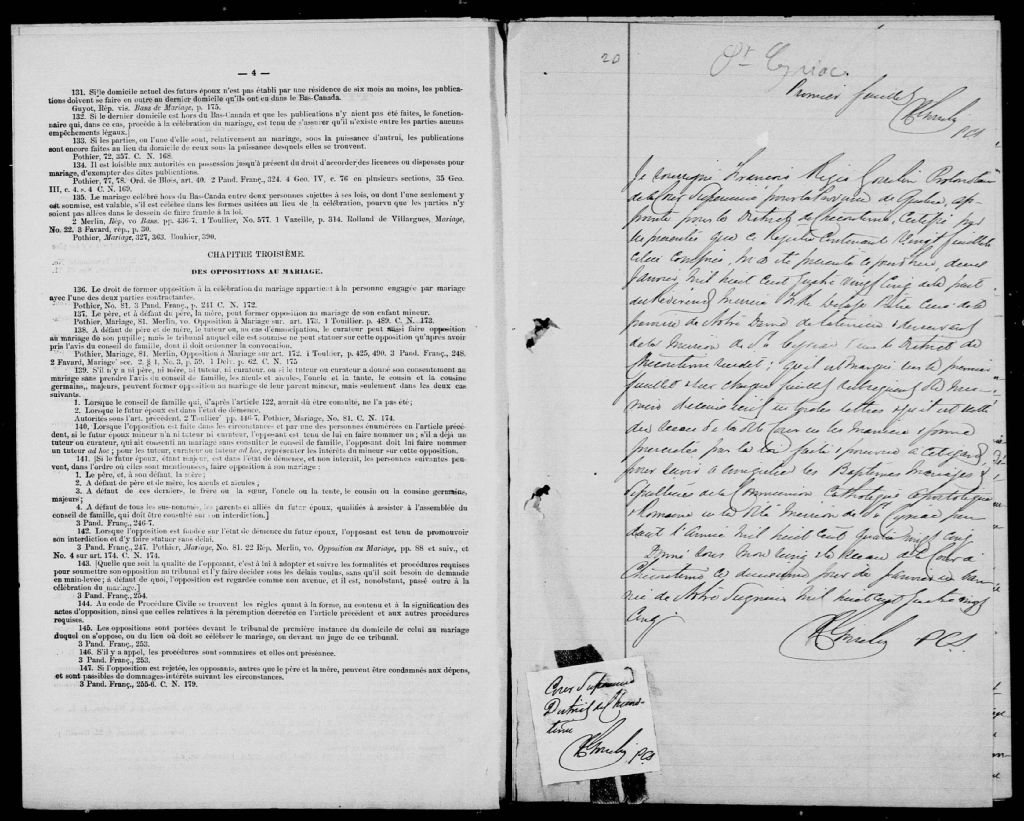 — 4 —
131. Si le domicile actuel des futurs époux n'est pas établi par une résidence de six mois au moins, les publica-
tions doivent se faire en outre au dernier domicile qu'ils ont eu dans le Bas-Canada.
Guyot, Rép. vis. Bans de Mariage, p. 175.
132. Si le dernier domicile est hors du Bas-Canada et que les publications n'y aient pas été faites, le fonction-
naire qui, dans ce cas, procède à la célébration du mariage, est tenu de s'assurer qu'il n'existe entre les parties aucuns
empêchements légaux.]
133. Si les parties, ou l'une d'elle sont, relativement au mariage, sous la puissance d'autrui, les publications
sont encore faites au lieu du domicile de ceux sous la puissance desquels elles se trouvent.
Pothier, 72, 357. C. N. 168.
134. Il est loisible aux autorités en possession jusqu'à présent du droit d'accorder des licences ou dispenses pour
mariage, d'exempter des dites publications.
Pothier, 77, 78. Ord. de Blois, art. 40. 2 Pand. Franç., 324. 4 Geo. IV, c. 76 en plusieurs sections. 35 Geo.
III, c. 4. s. 4 C. N. 169.
135. Le mariage célébré hors du Bas-Canda entre deux personnes sujettes à ses lois, ou dont l'une seulement y
est soumise, est valable, s'il est célébré dans les formes usitées au lieu de la célébration, pourvu que les parties n'y
soient pas allées dans le dessein de faire fraude à la loi.
2 Merlin, Rép, vo Bans, pp. 436-7. 1 Toullier, No. 577. 1 Vazeille, p. 314. Rolland de Villargues, Mariage,
No. 22. 3 Favard, rép., p. 30.
Pothier, Mariage, 327, 363. Bouhier, 390.
CHAPITRE TROISIÈME.
DES OPPOSITIONS AU MARIAGE.
136. Le droit de former opposition à la célébration du mariage appartient à la personne engagée par mariage
avec l'une des deux parties contractantes.
Pothier, No. 81. 3 Pand. Franç., p. 241 C. N. 172.
137. Le père, et à défaut du père, la mère, peut former opposition au mariage de son enfant mineur.
Pothier, Mariage, 81. Merlin, vo. Opposition à Mariage sur. art. 173. 1 Touillier. p. 489. C. N. 173.
138. A défaut de père et de mère, le tuteur ou, au cas d'émancipation, le curateur peut aussi faire opposition
au mariage de son pupille; mais le tribunal auquel elle est soumise ne peut statuer sur cette opposition qu'après avoir
pris l'avis du conseil de famille, dont il doit ordonner la convocation.
Pothier, Mariage, 81. Merlin, Opposition à Mariage sur art. 172. 1 Toullier, p. 425, 490. 3 Pand. Franç., 248.
2 Favard, Mariage sec. 2, § 1, No. 3, p. 59. 1 Delv. p. 62. C. N. 175
139. S'il n'y a ni père, ni mère, ni tuteur, ni curateur, ou si le tuteur ou curateur a donné son consentement au
mariage sans prendre l'avis du conseil de famille, les aïeuls et aïeules, l'oncle et la tante, le cousin et la cousine
germains, majeurs, peuvent former opposition au mariage de leur parent mineur, mais seulement dans les deux cas
suivants.
1. Lorsque le conseil de famille qui, d'après l'article 122, aurait dû être consulté, ne l'a pas été;
2. Lorsque le futur époux est dans l'état de démence.
Autorités sous l'art. précédent. 2 Toullier pp. 146-7. Pothier, Mariage, No. 81. C. N. 174.
140. Lorsque l'opposition est faite dans les circonstances et par une des personnes énumérées en l'article précé-
dent, si le futur époux mineur n'a ni tuteur ni curateur, l'opposant est tenu de lui en faire nommer un; s'il a déjà un
tuteur ou curateur, qui ait consenti au mariage sans consulter le conseil de famille, l'opposant doit lui faire nommer
un tuteur ad hoc; pour les tuteur, curateur ou tuteur ad hoc, représenter les intérêts du mineur sur cette opposition.
141. [Si le futur époux, étant majeur, est dans l'état de démence, et non interdit, les personnes suivantes peu-
vent, dans l'ordre où elles sont mentionnées, faire opposition à son mariage:
1. Le père, et, à son défaut, la mère;
2. A défaut de père et de mère, les aïeuls et aïeules;
3. A défaut de ces derniers, le frère ou la sœur, l'oncle ou la tente, le cousin ou la cousine germains,
majeurs;
4. A défaut de tous les sus-nommés, les parents et alliés du futur époux, qualifiés à assister à l'assemblée du
conseil de famille, qui doit être consulté sur son interdiction.]
3 Pand. Franç., 246-7.
142. Lorsque l'opposition est fondée sur l'état de démence du futur époux, l'opposant est tenu de promouvoir
son interdiction et d'y faire statuer sans délai.
3 Pand. Franç., 247. Pothier, Mariage, No. 81. 22 Rép. Merlin, vo. Opposition au Mariage, pp. 88 et suiv., et
No. 4 sur art. 174. C. N. 174.
143. [Quelle que soit la qualité de l'opposant, c'est à lui à adopter et suivre les formalités et procédures requises
pour soumettre son opposition au tribunal et l'y faire décider sous les délais voulus, sans qu'il soit besoin de demande
en main-levée; à défaut de quoi, l'opposition est regardée comme non avenue, et il est, nonobstant, passé outre à la
célébration du mariage.]
3 Pand. Franç., 254.
144. Au code de Procédure Civile se trouvent les règles quant à la forme, au contenu et à la signification des
actes d'opposition, ainsi que celles relatives à la péremption decrétée en l'article précédent et aux autres procédures
requises.
145. Les oppositions sont portées devant le tribunal de première instance du domicile de celui au mariage
duquel on s'oppose, ou du lieu où doit se célébrer le mariage, on devant un juge de ce tribunal.
3 Pand. Franç., 253.
146. S'il y a appel, les procédures sont sommaires et elles ont présénce.
3 Pand. Franç., 253.
147. Si l'opposition est rejetée, les opposants, autres que le père et la mère, peuvent être condamnés aux dépens,
et sont passibles de dommages-intérêts suivant les circonstances.
3 Pand. Franç., 255-6. C. N. 179.
20
St Cyriac
Premier feuillet
P.C.S.
Je soussigné François Régis Gosselin Protonotaire
de la Cour Supérieure pour la Province de Québec, ap-
pointé pour le District de Chicoutimi, Certifie par
les présentes que ce Registre Contenant Vingt feuillets
celui compris, m'a été présenté ce jourd'hui, deux
Janvier Mil huit Cent Quatre Vingt Cinq de la part
du Révérend Messire Ptre Curé de la
paroisse de Notre Dame de Laterrière & desservant
de la Mission de St Cyriac dans le District de
Chicoutimi susdit; qu'il est marqué sur le premier
feuillet & sur chaque feuillet subséquent du numé-
ro écrit en toutes lettres & qu'il est scellé
du sceau de la dite Cour en la manière & forme
prescrites par la Loi faite & pourvue à cet égard
pour servir à enregistrer les Baptêmes Mariages &
Sépultures de la Communion Catholique Apostolique
& Romaine en la dite Mission de St Cyriac pen-
dant l'année Mil huit Cent Quatre Vingt Cinq
Donné sous mon seing & le sceau de la Cour à
Chicoutimi ce deuxième jour de Janvier en l'an-
née de Notre Seigneur Mil huit Cent Quatre Vingt
Cinq
P.C.S.
Cour Supérieure
District de Chicou-
timi
P.C.S.